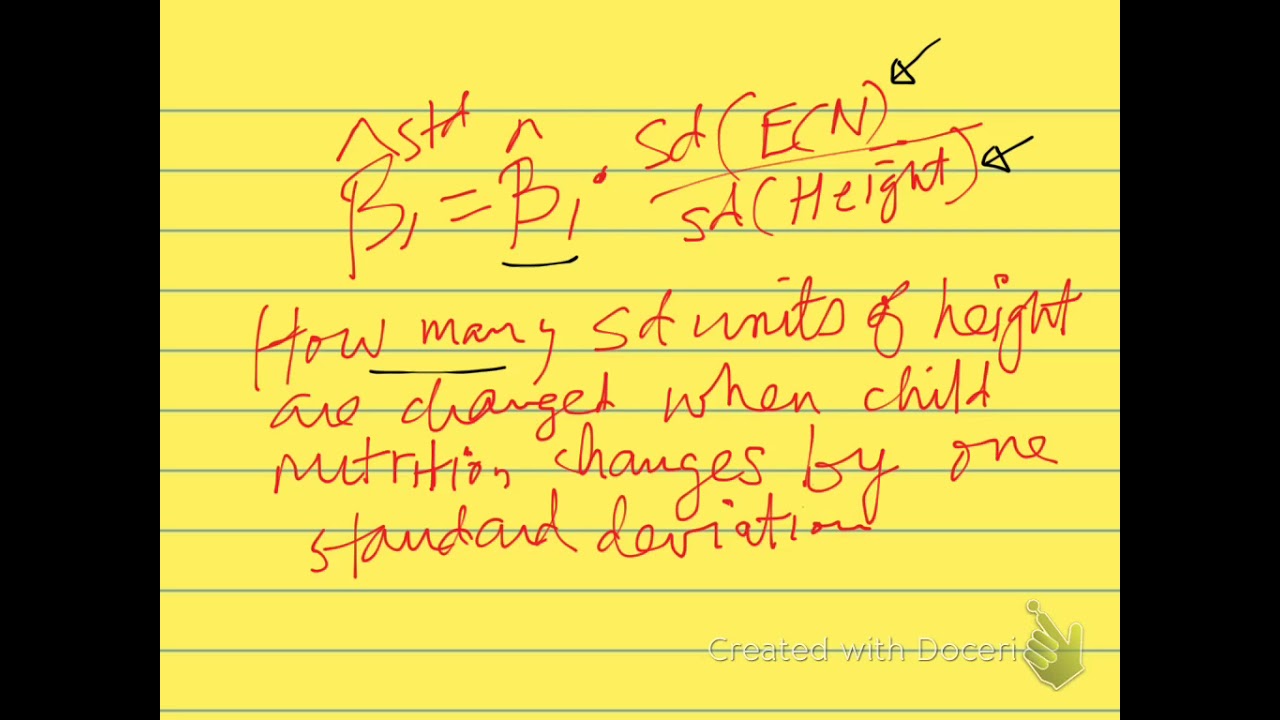 β̂₁ˢᵗᵈ = β̂₁ · sd(ECN) / sd(Height)
How many sd units of height
are changed when child
nutrition changes by one
standard deviation
Created with Doceri